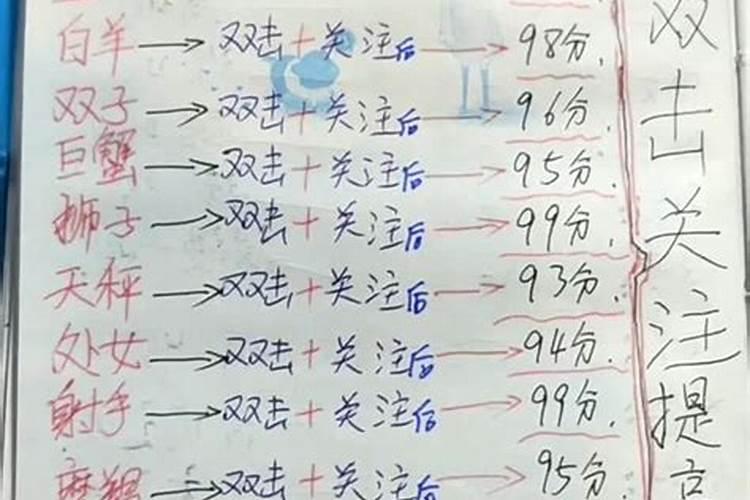 白羊→双击+关注后→98分.
双子→双击+关注后→96分.
巨蟹→双击+关注后→95分.
狮子→双击+关注后→99分.
天秤→双击+关注后→93分.
处女→双击+关注后→94分.
射手→双击+关注后→99分.
摩羯→双击+关注后→95分
双击关注提高